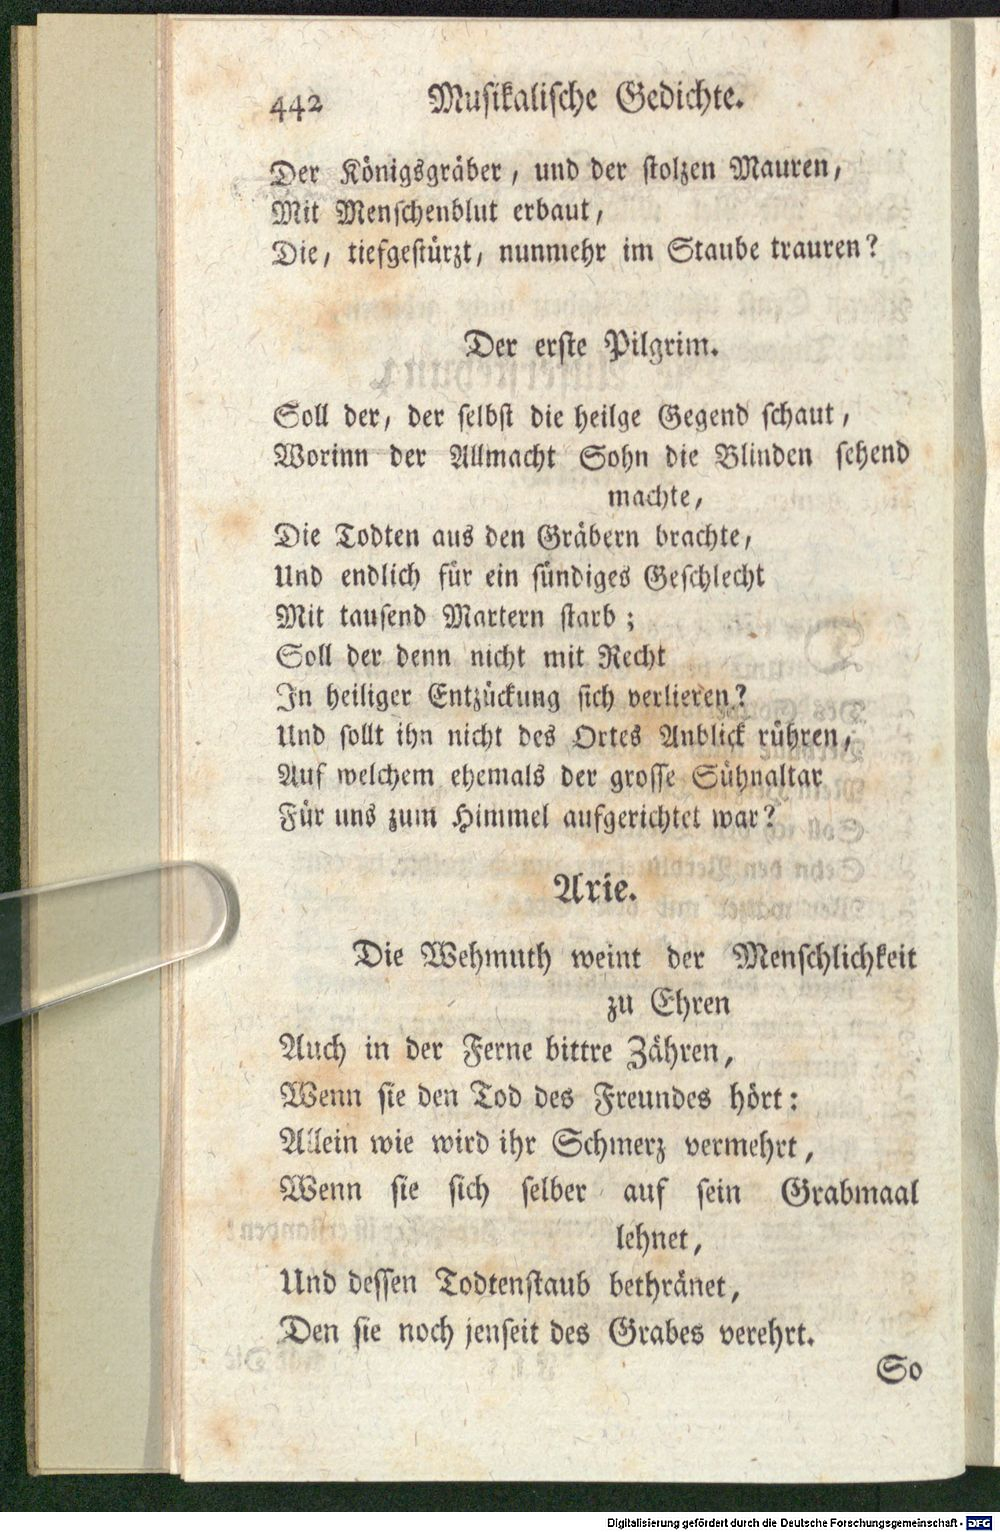 442 Musikalische Gedichte.
Der Königsgräber, und der stolzen Mauren,
Mit Menschenblut erbaut,
Die, tiefgestürzt, nunmehr im Staube trauren?
Der erste Pilgrim.
Soll der, der selbst die heilge Gegend schaut,
Worinn der Allmacht Sohn die Blinden sehend
machte,
Die Todten aus den Gräbern brachte,
Und endlich für ein sündiges Geschlecht
Mit tausend Martern starb;
Soll der denn nicht mit Recht
In heiliger Entzückung sich verlieren?
Und sollt ihn nicht des Ortes Anblick rühren,
Auf welchem ehemals der grosse Sühnaltar
Für uns zum Himmel aufgerichtet war?
Arie.
Die Wehmuth weint der Menschlichkeit
zu Ehren
Auch in der Ferne bittre Zähren,
Wenn sie den Tod des Freundes hört:
Allein wie wird ihr Schmerz vermehrt,
Wenn sie sich selber auf sein Grabmaal
lehnet,
Und dessen Todtenstaub bethränet,
Den sie noch jenseit des Grabes verehrt.
So
Digitalisierung gefördert durch die Deutsche Forschungsgemeinschaft - DFG